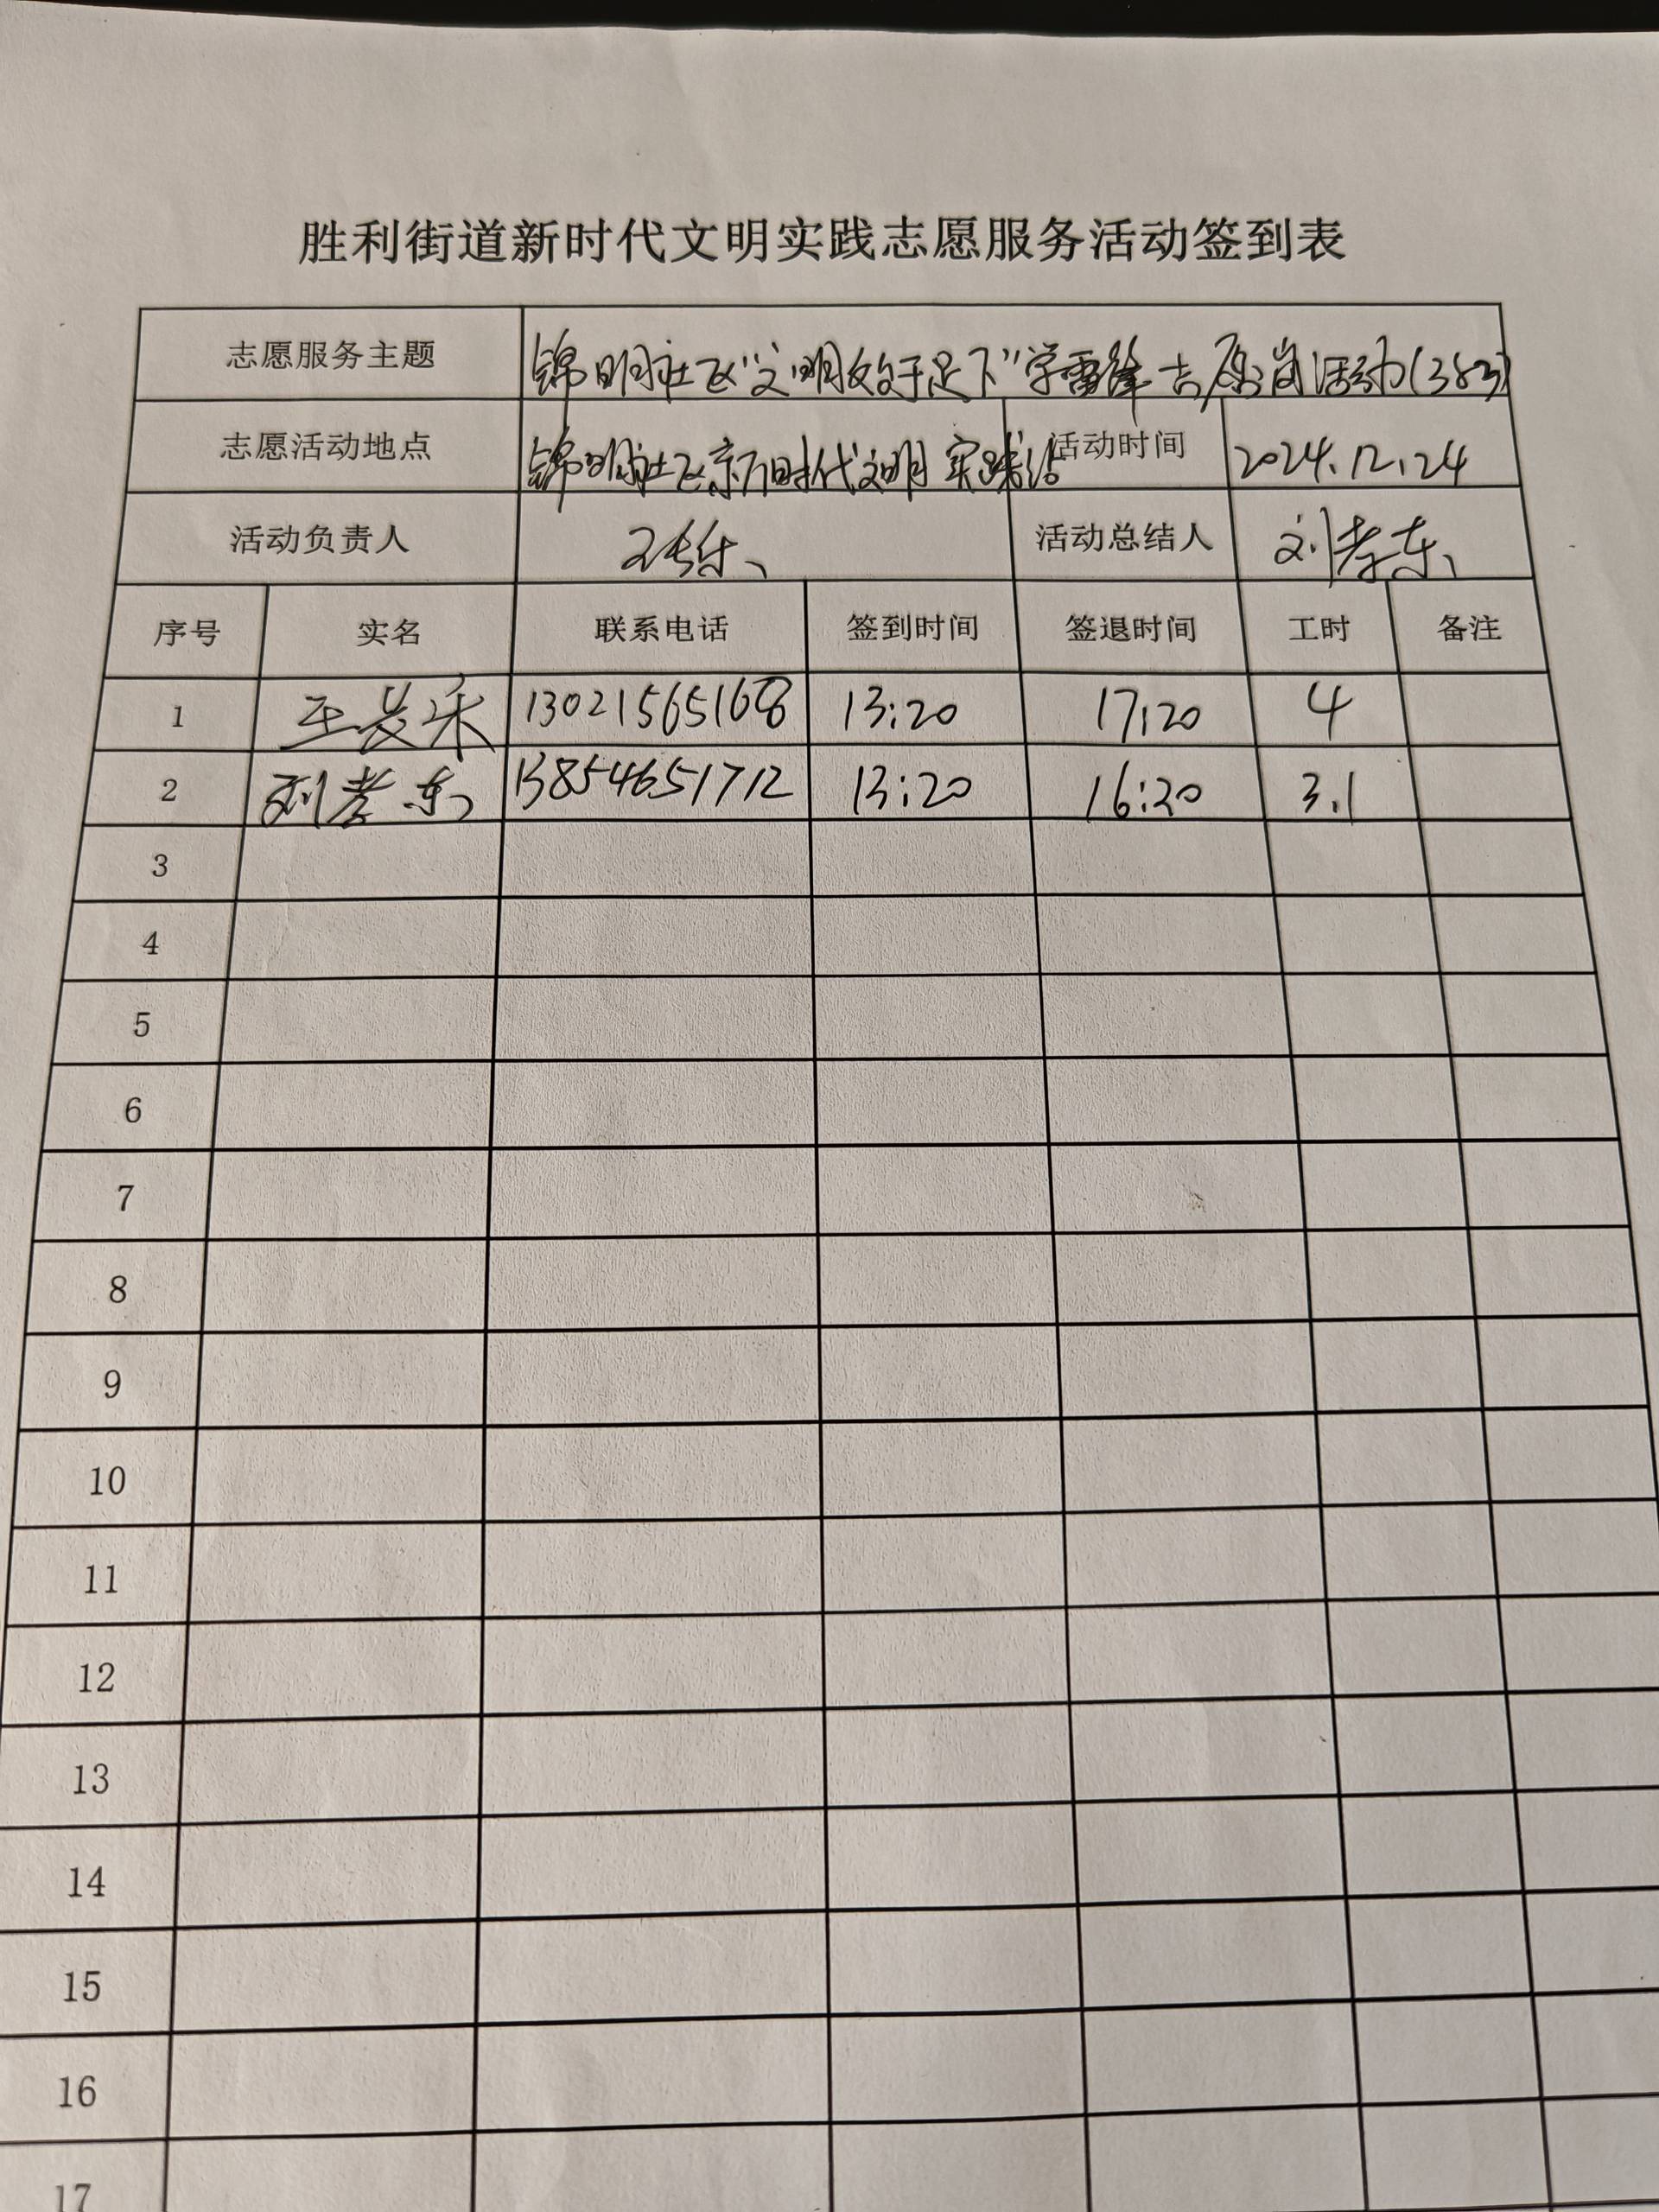 胜利街道新时代文明实践志愿服务活动签到表
志愿服务主题 锦明社区"文明始于足下"学雷锋志愿岗活动(383)
志愿活动地点 锦明社区新时代文明实践站 活动时间 2024.12.24
活动负责人 活动总结人 刘孝东
序号 实名 联系电话 签到时间 签退时间 工时 备注
1 王长乐 13021565168 13:20 17:20 4
2 刘孝东 13854651712 13:20 16:20 3.1
3
4
5
6
7
8
9
10
11
12
13
14
15
16
17